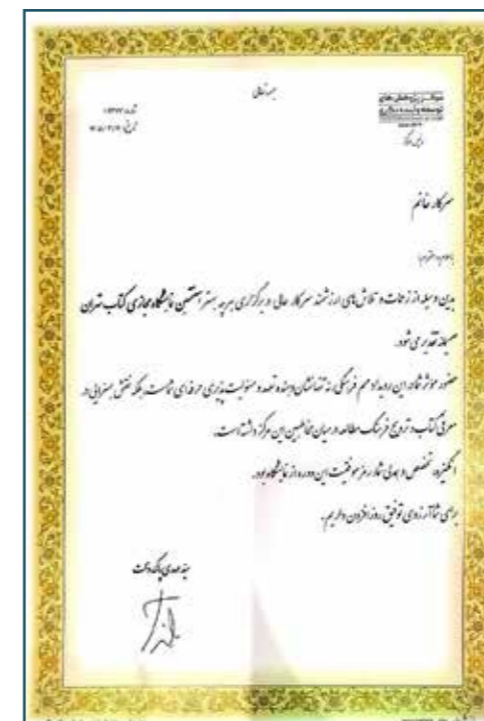 بسمه تعالی
مرکز پژوهش‌های
توسعه و آینده‌نگری
سرکار خانم
با سلام و احترام؛
بدین وسیله از زحمات و تلاش‌های ارزشمند سرکار عالی در برگزاری هر چه بهتر نمایشگاه مجازی کتاب تهران
صمیمانه تقدیر می‌شود.
حضور موثر شما در این رویداد مهم فرهنگی، نه تنها نشان دهنده تعهد و مسئولیت‌پذیری حرفه‌ای شماست، بلکه نقش بسزایی در
معرفی کتاب و ترویج فرهنگ مطالعه در میان مخاطبین این مرکز داشته است.
انگیزه، تخصص و همدلی شما، رمز موفقیت این دوره از نمایشگاه بود.
برای شما آرزوی توفیق روزافزون داریم.